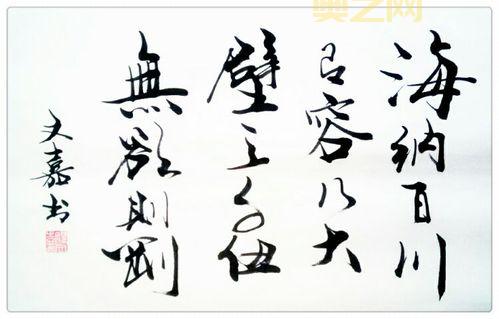 海納百川
有容乃大
壁立千仞
無欲則剛
文嘉书